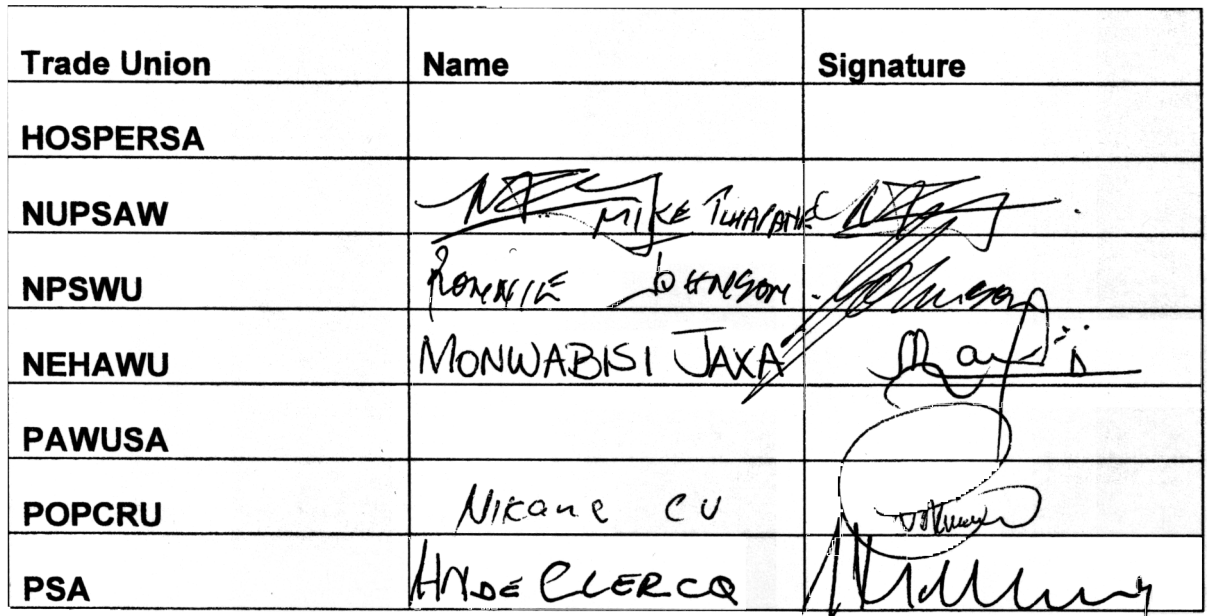 Trade Union Name Signature
HOSPERSA
NUPSAW MIKE
NPSWU RONNIE JOHNSON
NEHAWU MONWABISI JAXA
PAWUSA
POPCRU Nikane CV
PSA DE CLERCQ